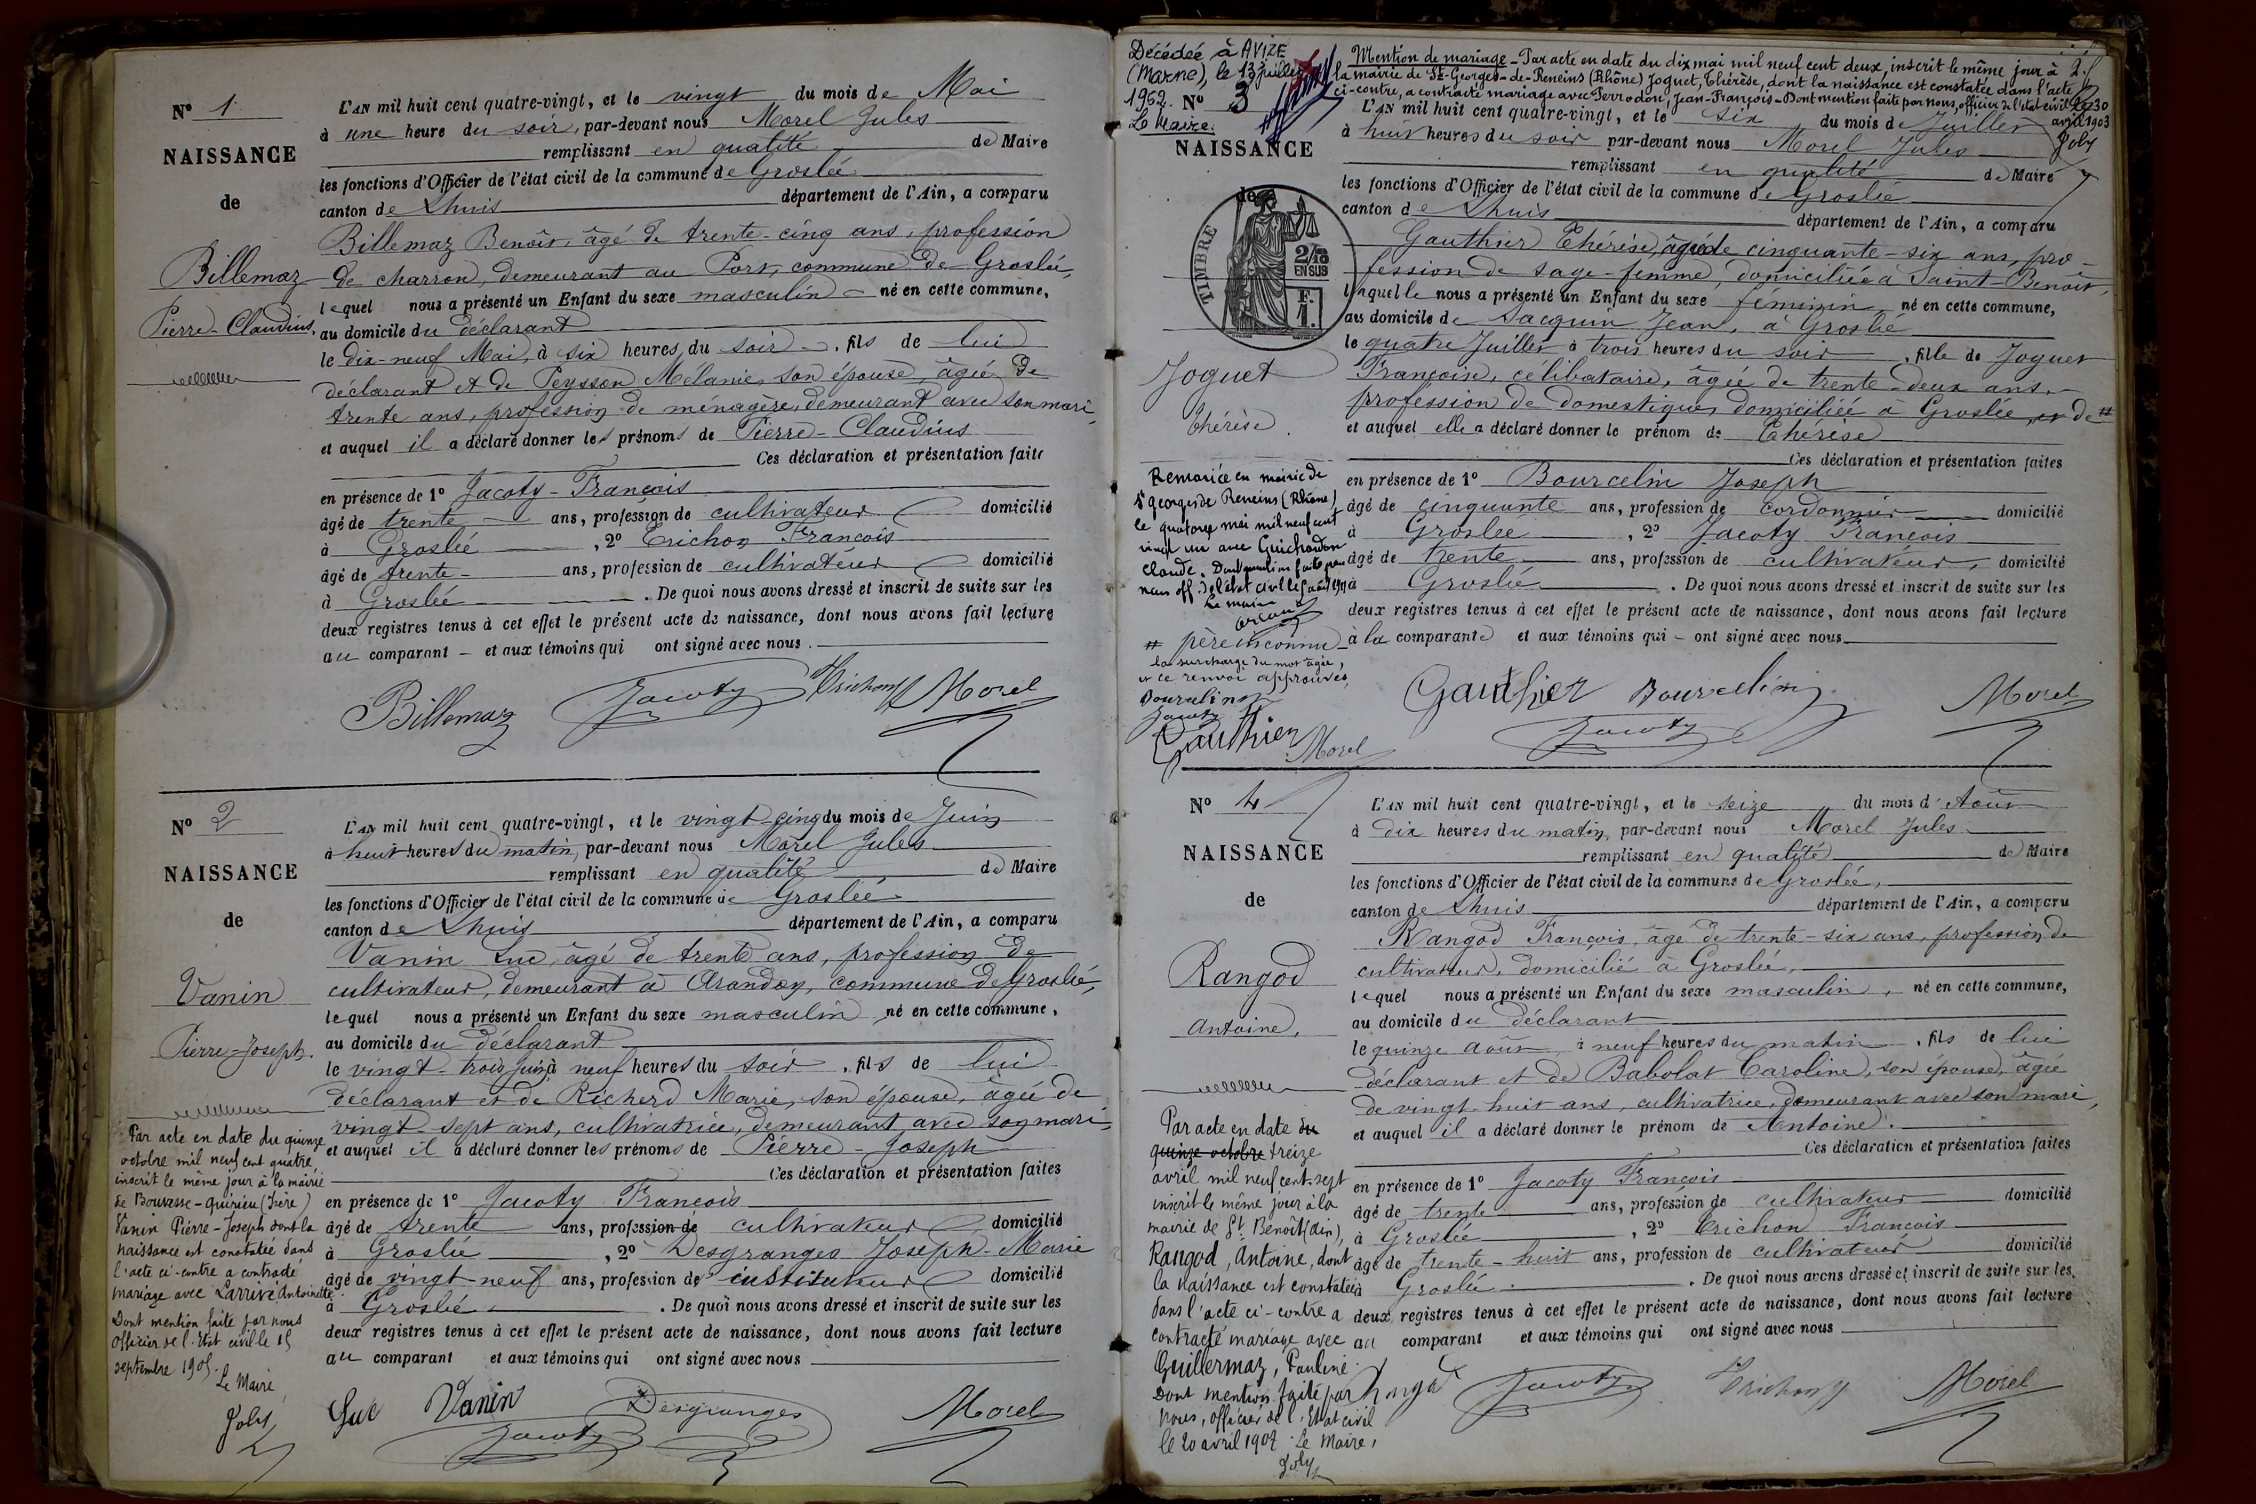 N° 1
NAISSANCE
de
Billemaz
Pierre-Claudius.
L'AN mil huit cent quatre-vingt, et le vingt du mois de Mai
à une heure du soir, par-devant nous Morel Jules
remplissant en qualité de Maire
les fonctions d'Officier de l'état civil de la commune de Groslée
canton de Lhuis département de l'Ain, a comparu
Billemaz Benoît, âgé de trente-cinq ans, profession
de charron, demeurant au Port, commune de Groslée,
lequel nous a présenté un Enfant du sexe masculin né en cette commune,
au domicile du déclarant
le dix-neuf Mai, à six heures du soir, fils de lui
déclarant et de Peysson Mélanie, son épouse, âgée de
trente ans, profession de ménagère, demeurant avec son mari,
et auquel il a déclaré donner les prénoms de Pierre-Claudius
Ces déclaration et présentation faite
en présence de 1° Jacoty-François
âgé de trente ans, profession de cultivateur domicilié
à Groslée, 2° Trichon François
âgé de trente ans, profession de cultivateur domicilié
à Groslée. De quoi nous avons dressé et inscrit de suite sur les
deux registres tenus à cet effet le présent acte de naissance, dont nous avons fait lecture
au comparant et aux témoins qui ont signé avec nous.
Billemaz Jacoty Trichon Morel
N° 2
NAISSANCE
de
Vanin
Pierre-Joseph.
Par acte en date du quinze
octobre mil neuf cent quatre
inscrit le même jour à la mairie
de Bouvesse-Quirieu (Isère)
Vanin Pierre-Joseph dont la
naissance est constatée dans
l'acte ci-contre a contracté
mariage avec Larrivé Antoinette
Dont mention faite par nous
officier de l'Etat civil le 15
septembre 1905.
Le Maire
Joly
L'AN mil huit cent quatre-vingt, et le vingt-cinq du mois de Juin
à huit heures du matin, par-devant nous Morel Jules
remplissant en qualité de Maire
les fonctions d'Officier de l'état civil de la commune de Groslée
canton de Lhuis département de l'Ain, a comparu
Vanin Luc, âgé de trente ans, profession de
cultivateur, demeurant à Arandon, commune de Groslée,
lequel nous a présenté un Enfant du sexe masculin né en cette commune,
au domicile du déclarant
le vingt-trois Juin à neuf heures du soir, fils de lui
déclarant et de Richerd Marie, son épouse, âgée de
vingt-sept ans, cultivatrice, demeurant avec son mari,
et auquel il a déclaré donner les prénoms de Pierre-Joseph
Ces déclaration et présentation faites
en présence de 1° Jacoty François
âgé de trente ans, profession de cultivateur domicilié
à Groslée, 2° Desgranges Joseph-Marie
âgé de vingt-neuf ans, profession de instituteur domicilié
à Groslée. De quoi nous avons dressé et inscrit de suite sur les
deux registres tenus à cet effet le présent acte de naissance, dont nous avons fait lecture
au comparant et aux témoins qui ont signé avec nous
Luc Vanin Desgranges Morel
Jacoty
Décédée à AVIZE
(Marne), le 13 juillet
1962.
Le Maire.
Mention de mariage - Par acte en date du dix mai mil neuf cent deux, inscrit le même jour à
la mairie de St-Georges-de-Reneins (Rhône) Joguet, Thérèse, dont la naissance est constatée dans l'acte
ci-contre, a contracté mariage avec Perrodon, Jean-François - Dont mention faite par nous, officier de l'état civil le 30
avril 1903
Joly
N° 3
NAISSANCE
de
TIMBRE
2/10
EN SUS
F.
1.
Joguet
Thérèse
Remariée en mairie de
St Georges de Reneins (Rhône)
le quatorze mai mil neuf cent
vingt un avec Guichardon
Claude. Dont mention faite par
nous off. de l'état civil le
Le maire
# père inconnu
la surcharge du mot âgée,
et ce renvoi approuvés
Bourcelin
Jacoty
Gauthier Morel
L'AN mil huit cent quatre-vingt, et le six du mois de Juillet
à huit heures du soir par-devant nous Morel Jules
remplissant en qualité de Maire
les fonctions d'Officier de l'état civil de la commune de Groslée
canton de Lhuis département de l'Ain, a comparu
Gauthier Thérèse, âgée de cinquante-six ans, pro-
fession de sage-femme, domiciliée à Saint-Benoit,
laquelle nous a présenté un Enfant du sexe féminin né en cette commune,
au domicile de Jacquin Jean, à Groslée
le quatre Juillet à trois heures du soir, fille de Joguet
Françoise, célibataire, âgée de trente-deux ans,
profession de domestique, domiciliée à Groslée, et de #
et auquel elle a déclaré donner le prénom de Thérèse
Ces déclaration et présentation faites
en présence de 1° Bourcelin Joseph
âgé de cinquante ans, profession de cordonnier domicilié
à Groslée, 2° Jacoty François
âgé de trente ans, profession de cultivateur, domicilié
à Groslée. De quoi nous avons dressé et inscrit de suite sur les
deux registres tenus à cet effet le présent acte de naissance, dont nous avons fait lecture
à la comparante et aux témoins qui ont signé avec nous
Gauthier Bourcelin Morel
Jacoty
N° 4
NAISSANCE
de
Rangod
Antoine,
Par acte en date du
quinze octobre treize
avril mil neuf cent-sept
inscrit le même jour à la
mairie de St Benoît (Ain),
Rangod, Antoine, dont
la naissance est constatée
dans l'acte ci-contre a
contracté mariage avec
Guillermaz, Pauline.
Dont mention faite par
nous, officier de l'Etat civil
le 20 avril 1907. Le Maire,
Joly
L'AN mil huit cent quatre-vingt, et le seize du mois d'Août
à dix heures du matin, par-devant nous Morel Jules
remplissant en qualité de Maire
les fonctions d'Officier de l'état civil de la commune de Groslée,
canton de Lhuis département de l'Ain, a comparu
Rangod François, âgé de trente-six ans, profession de
cultivateur, domicilié à Groslée,
lequel nous a présenté un Enfant du sexe masculin, né en cette commune,
au domicile du déclarant
le quinze août à neuf heures du matin, fils de lui
déclarant et de Babolat Caroline, son épouse, âgée
de vingt-huit ans, cultivatrice, demeurant avec son mari,
et auquel il a déclaré donner le prénom de Antoine.
Ces déclaration et présentation faites
en présence de 1° Jacoty François
âgé de trente ans, profession de cultivateur domicilié
à Groslée, 2° Trichon François
âgé de trente-huit ans, profession de cultivateur domicilié
à Groslée. De quoi nous avons dressé et inscrit de suite sur les
deux registres tenus à cet effet le présent acte de naissance, dont nous avons fait lecture
au comparant et aux témoins qui ont signé avec nous
Jacoty Trichon Morel